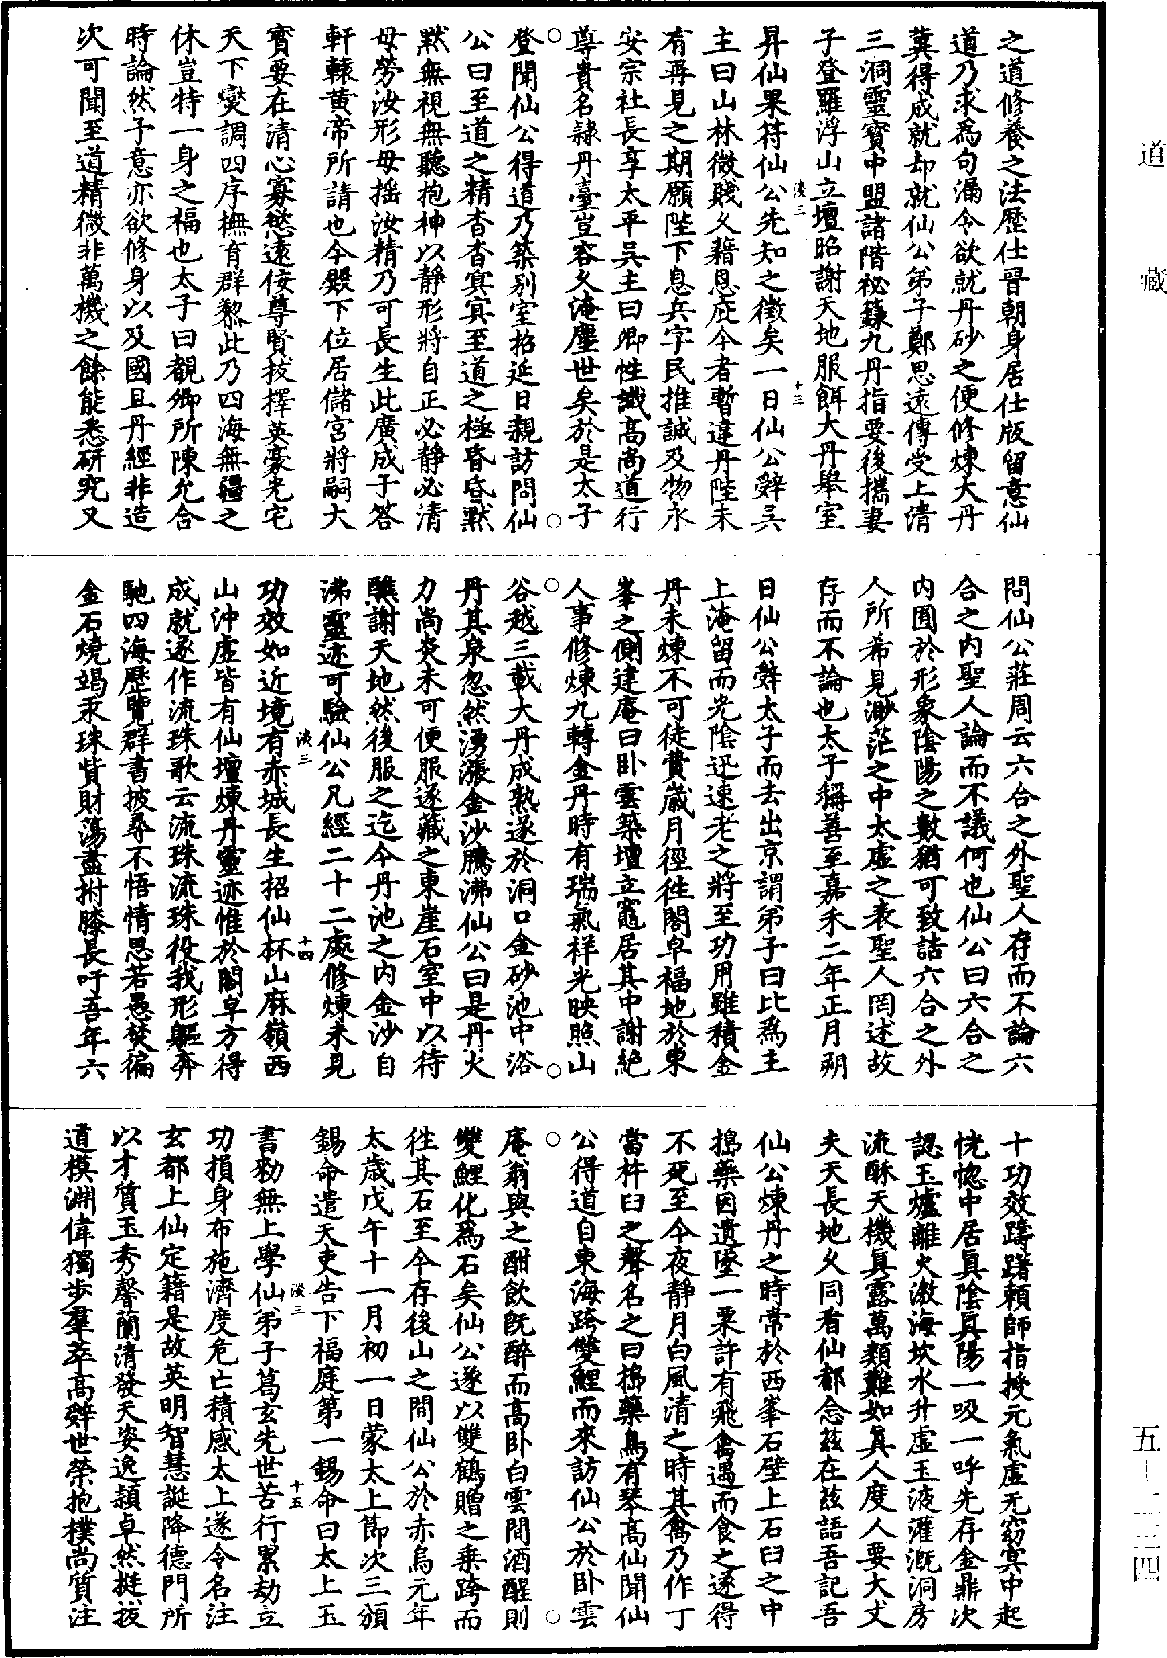 道藏
之道修養之法歷仕晉朝身居仕版留意仙
道乃求為句漏令欲就丹砂之便修煉大丹
冀得成就却就仙公弟子鄭思遠傳受上清
三洞靈寶中盟諸階祕籙九丹指要後攜妻
子登羅浮山立壇昭謝天地服餌大丹舉室
淡三 十三
昇仙果符仙公先知之徵矣一日仙公辭吳
主曰山林微賤久藉恩庇今者暫違丹陛未
有再見之期願陛下息兵字民推誠及物永
安宗社長享太平吳主曰卿性識高尚道行
尊貴名隸丹臺豈容久淹塵世矣於是太子
登聞仙公得道乃築別室招延日親訪問仙
公曰至道之精杳杳冥冥至道之極昏昏默
默無視無聽抱神以靜形將自正必靜必清
毋勞汝形毋搖汝精乃可長生此廣成子答
軒轅黃帝所請也今殿下位居儲宮將嗣大
寶要在清心寡慾遠佞尊賢拔擇英豪光宅
天下燮調四序撫育群黎此乃四海無疆之
休豈特一身之福也太子曰觀卿所陳允合
時論然予意亦欲修身以及國且丹經非造
次可聞至道精微非萬機之餘能悉研究又
問仙公莊周云六合之外聖人存而不論六
合之內聖人論而不議何也仙公曰六合之
內囿於形象陰陽之數猶可致詰六合之外
人所希見渺茫之中太虛之表聖人罔述故
存而不論也太子稱善至嘉禾二年正月朔
日仙公辭太子而去出京謂弟子曰比為主
上淹留而光陰迅速老之將至功用雖積金
丹未煉不可徒費歲月徑往閤皁福地於東
峯之側建庵曰卧雲築壇立竈居其中謝絕
人事修煉九轉金丹時有瑞氣祥光映照山
谷越三載大丹成熟遂於洞口金砂池中浴
丹其泉忽然湧漲金沙騰沸仙公曰是丹火
力尚炎未可便服遂藏之東崖石室中以待
醮謝天地然後服之迄今丹池之內金沙自
沸靈迹可驗仙公凡經二十二處修煉未見
淡三 十四
功效如近境有赤城長生招仙杯山麻嶺西
山沖虛皆有仙壇煉丹靈迹惟於閤皁方得
成就遂作流珠歌云流珠流珠役我形軀奔
馳四海歷覽群書披尋不悟情思若愚焚徧
金石燒竭汞珠貲財蕩盡拊膝長吁吾年六
十功效躊躇賴師指授元氣虛无窈冥中起
恍惚中居真陰真陽一吸一呼先存金鼎次
認玉爐離火激海坎水升虛玉液灌溉洞房
流酥天機真露萬類難如真人度人要大丈
夫天長地久同看仙都念茲在茲語吾記吾
仙公煉丹之時常於西峯石壁上石臼之中
搗藥因遺墜一粟許有飛禽遇而食之遂得
不死至今夜靜月白風清之時其禽乃作丁
當杵臼之聲名之曰搗藥鳥有琴高仙聞仙
公得道自東海跨雙鯉而來訪仙公於卧雲
庵翁與之酣飲既醉而高卧白雲間酒醒則
雙鯉化為石矣仙公遂以雙鶴贈之乘跨而
往其石至今存後山之間仙公於赤烏元年
太歲戊午十一月初一日蒙太上節次三頒
錫命遣天吏告下福庭第一錫命曰太上玉
淡三 十五
書勑無上學仙弟子葛玄先世苦行累劫立
功損身布施濟度危亡積感太上遂令名注
玄都上仙定籍是故英明智慧誕降德門所
以才質玉秀馨蘭清發天姿逸穎卓然挺拔
道模淵偉獨步羣萃高辭世榮抱樸尚質注
五－二三四